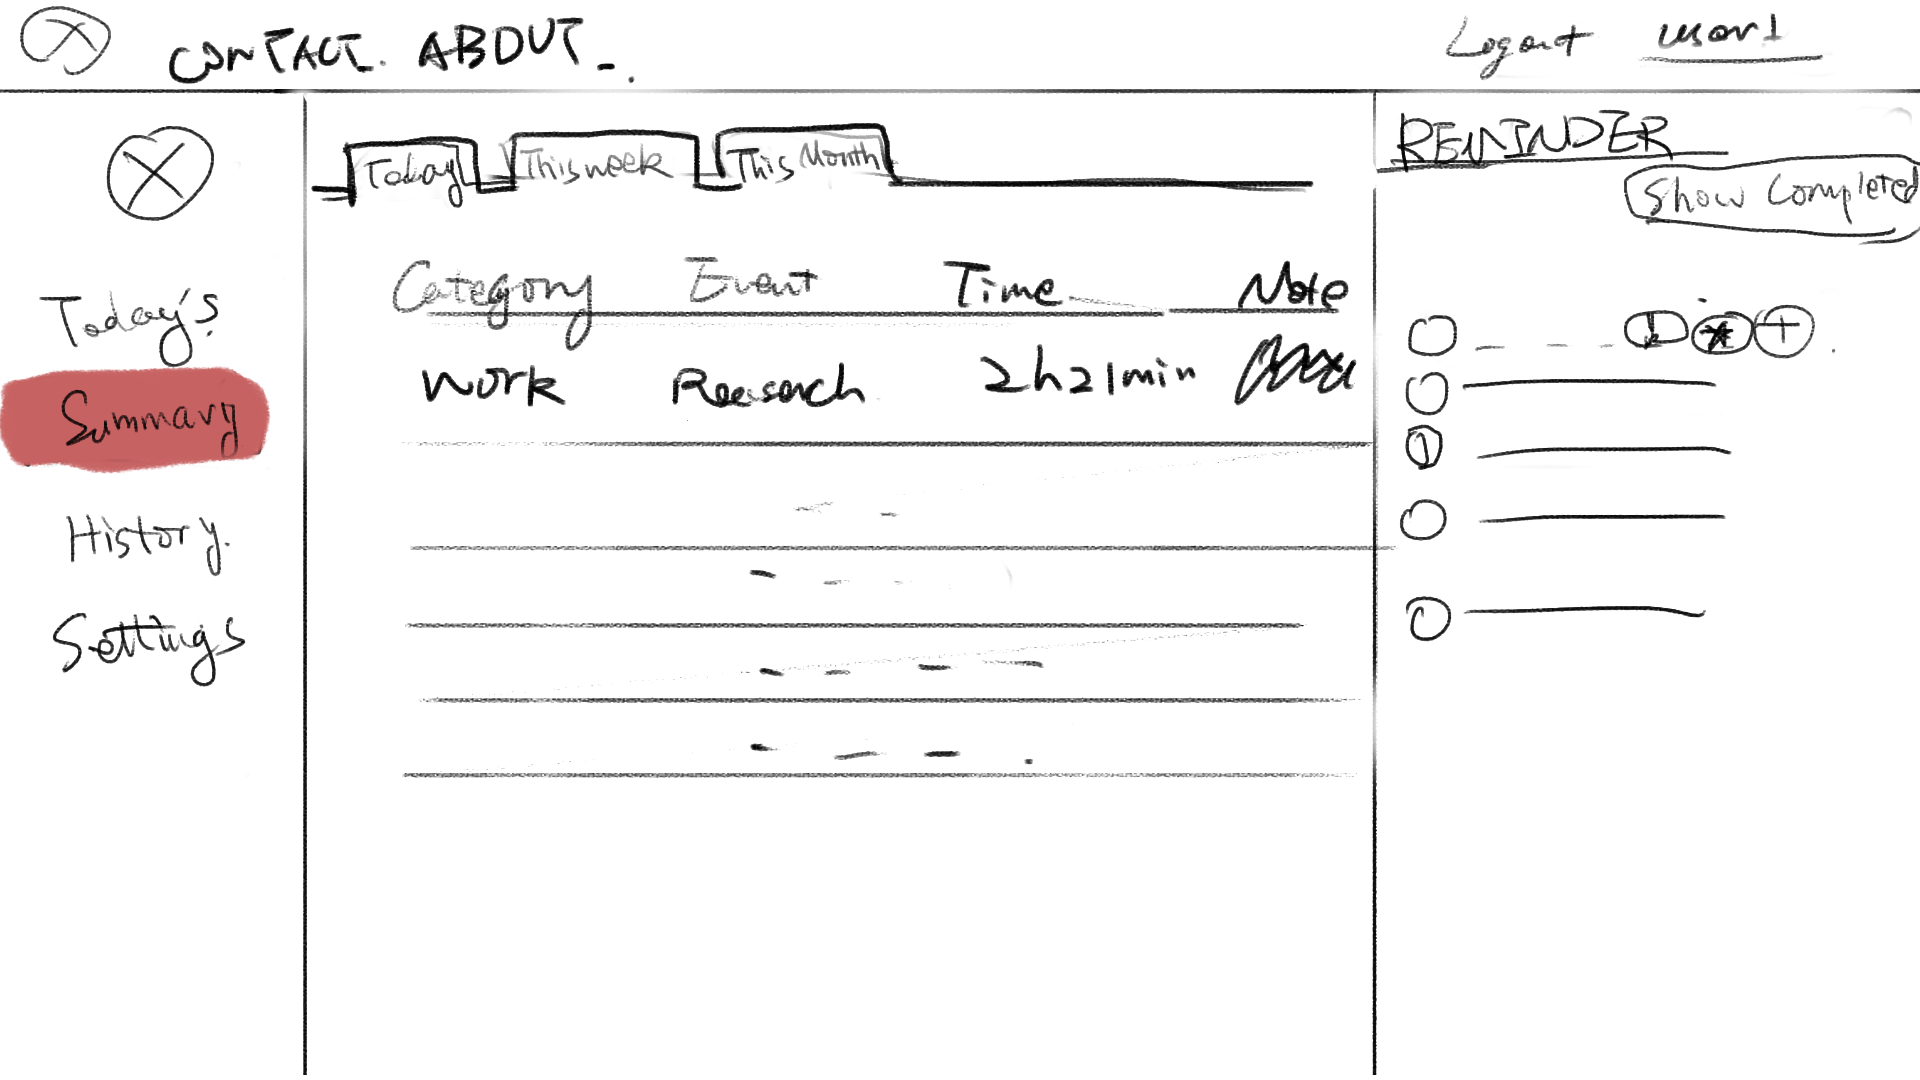 CONTACT. ABOUT
Logout user1
Today's
Summary
History.
Settings
Today This week This Month
Category Event Time Note
Work Reasearch 2h21min
REMINDER
Show Completed